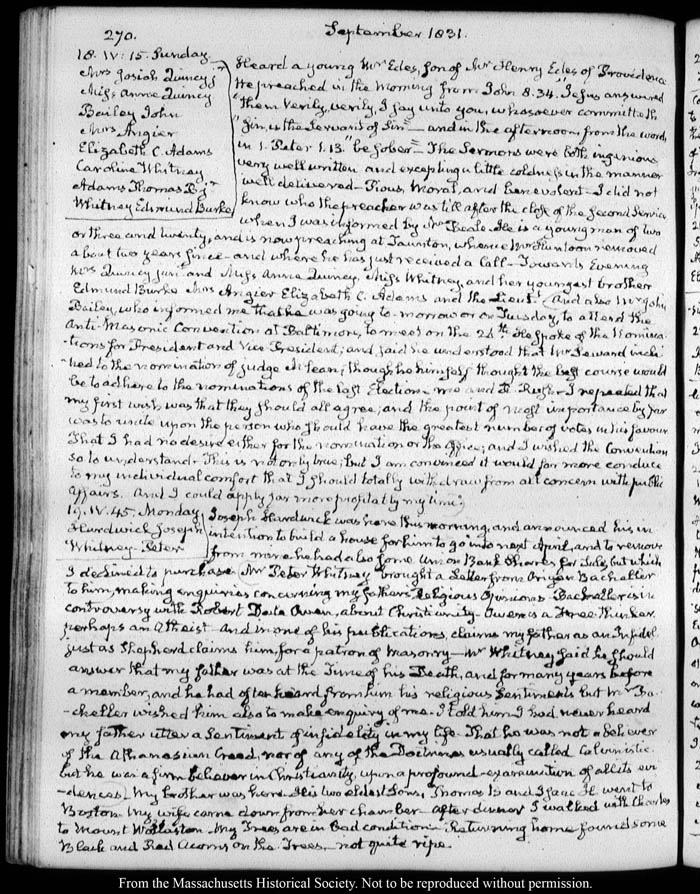 270.
September 1831.
18. IV:15. Sunday
Mrs Josiah Quincy Jr
Miss Anna Quincy
Bailey John
Mrs Angier
Elizabeth C. Adams
Caroline Whitney
Adams Thomas B. Jr
Whitney Edmund Burke
Heard a young Mr Edes, son of Mr Henry Edes of Providence
He preached in the morning from John 8.34. Jesus answered
them Verily, verily, I say unto you, whosoever committeth
Sin, is the Servant of Sin" — and in the afternoon from the words
in 1. Peter 1.13. "be sober" — The Sermons were both ingenious
very well written and excepting a little coldness in the manner
well delivered — Pious, moral, and benevolent — I did not
know who the preacher was till after the close of the second Service
when I was informed by Mr Beale. He is a young man of two
or three and twenty, and is now preaching at Taunton, whence Mr Huntoon removed
about two years since — and where he has just received a call — Towards Evening
Mrs Quincy junr and Miss Anna Quincy, Miss Whitney and her youngest brother
Edmund Burke Mrs Angier Elizabeth C. Adams and the Lieutt And also Mr John
Bailey, who informed me that he was going to-morrow or on Tuesday, to attend the
Anti-Masonic Convention at Baltimore, to meet on the 26th He spoke of the Nomina
-tions for President and Vice President; and said he understood that Mr Seward incli
-ned to the nomination of Judge McLean; though he himself thought the best course would
be to adhere to the nominations of the last Election — me and R. Rush — I repeated that
my first wish was that they should all agree; and the point of most importance by far
was to unite upon the person who should have the greatest number of votes in his favour
That I had no desire either for the nomination or the Office; and I wished the Convention
so to understand. This is not only true; but I am convinced it would far more conduce
to my individual comfort that I should totally withdraw from all concern with public
Affairs. And I could apply far more profitably my time.
19. IV.45. Monday
Hardwick Joseph
Whitney Peter
Joseph Hardwick was here this morning, and announced his in
intention to build a house for him to go into next April, and to remove
from mine he had also some Union Bank Shares for Sale, but which
I declined to purchase. Mr Peter Whitney brought a Letter from Origen Bacheller
to him, making enquiries concerning my father's religious Opinions. Bacheller is in
controversy with Robert Dale Owen, about Christianity. Owen is a Free-thinker
perhaps an Atheist — And in one of his publications, claims my father as an Infidel
just as Shepherd claims him, for a patron of Masonry — Mr Whitney said he should
answer that my father was at the Time of his Death, and for many years before
a member, and he had often heard from him his religious sentiments but Mr Ba-
-cheller wished him also to make enquiry of me. I told him I had never heard
my father utter a sentiment of infidelity in my life. That he was not a believer
of the Athanasian Creed, nor of any of the Doctrines usually called Calvinistic.
but he was a firm believer in Christianity, upon a profound examination of all its evi
-dences. My brother was here. His two eldest Sons, Thomas B and Isaac H. went to
Boston. My wife came down from her chamber — after dinner I walked with Charles
to Mount Wollaston. My Trees are in bad condition. Returning home found some
Black and Red Acorns on the Trees, not quite ripe.
From the Massachusetts Historical Society. Not to be reproduced without permission.